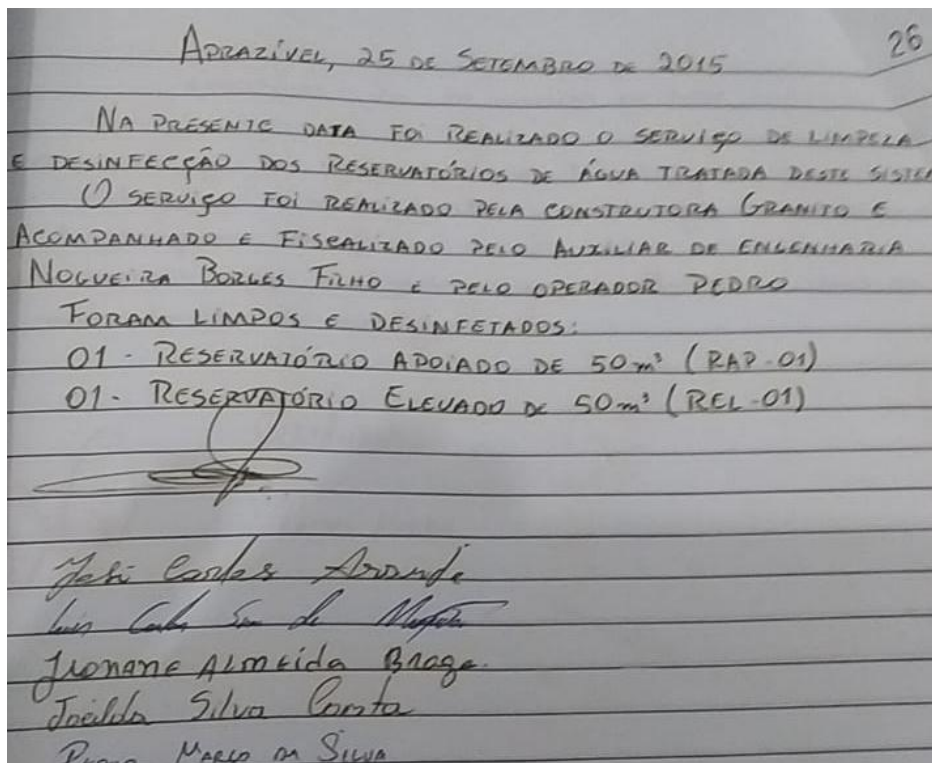 26
APRAZÍVEL, 25 DE SETEMBRO DE 2015
NA PRESENTE DATA FOI REALIZADO O SERVIÇO DE LIMPEZA
E DESINFECÇÃO DOS RESERVATÓRIOS DE ÁGUA TRATADA DESTE SISTE
O SERVIÇO FOI REALIZADO PELA CONSTRUTORA GRANITO E
ACOMPANHADO E FISCALIZADO PELO AUXILIAR DE ENGENHARIA
NOGUEIRA BORGES FILHO E PELO OPERADOR PEDRO
FORAM LIMPOS E DESINFETADOS:
01 - RESERVATÓRIO APOIADO DE 50m³ (RAP-01)
01 - RESERVATÓRIO ELEVADO DE 50m³ (REL-01)
José Carlos
Luis Carlos
Almeida Braga
Silva Costa
Março da Silva